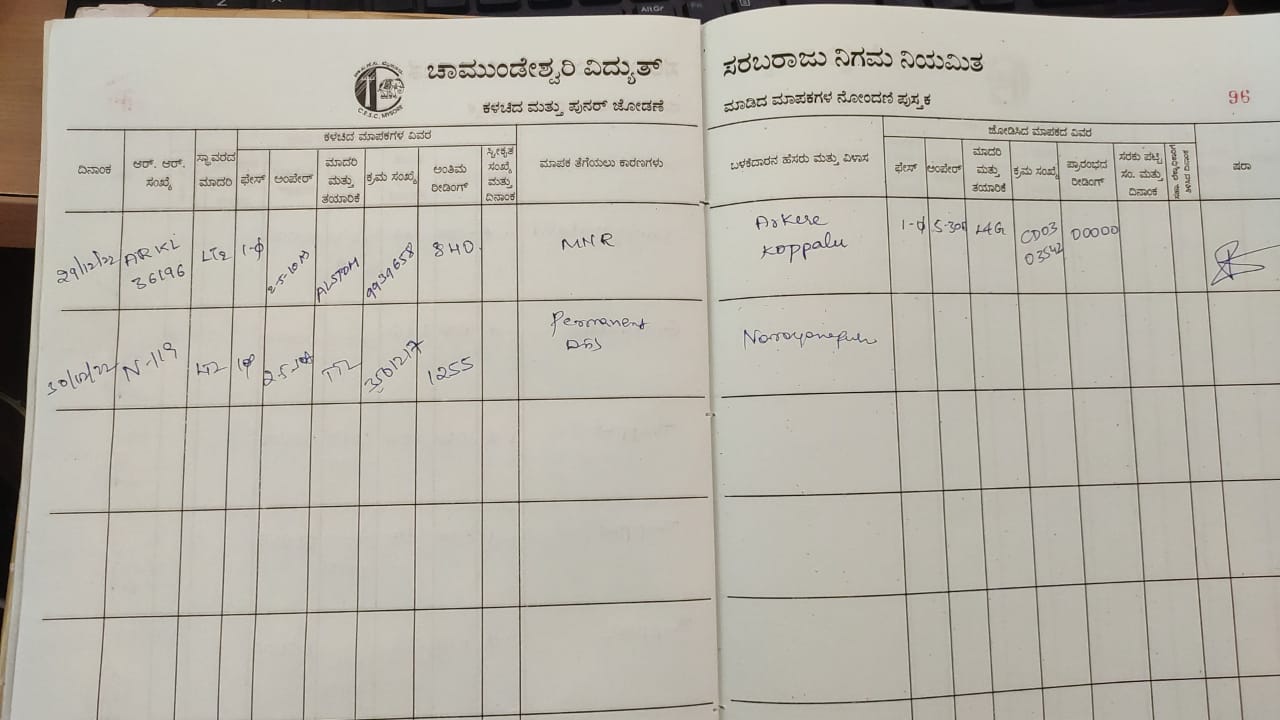 AltGr
ಚಾಮುಂಡೇಶ್ವರಿ ವಿದ್ಯುತ್ ಸರಬರಾಜು ನಿಗಮ ನಿಯಮಿತ
C.E.S.C. MYSORE
ಕಳಚಿದ ಮತ್ತು ಪುನರ್ ಜೋಡಣೆ ಮಾಡಿದ ಮಾಪಕಗಳ ನೋಂದಣಿ ಪುಸ್ತಕ
96
ದಿನಾಂಕ
ಆರ್. ಆರ್. ಸಂಖ್ಯೆ
ಸ್ಥಾವರದ ಮಾದರಿ
ಕಳಚಿದ ಮಾಪಕಗಳ ವಿವರ
ಫೇಸ್
ಅಂಪೇರ್
ಮಾದರಿ ಮತ್ತು ತಯಾರಿಕೆ
ಕ್ರಮ ಸಂಖ್ಯೆ
ಅಂತಿಮ ರೀಡಿಂಗ್
ಸ್ವೀಕೃತ ಸಂಖ್ಯೆ ಮತ್ತು ದಿನಾಂಕ
ಮಾಪಕ ತೆಗೆಯಲು ಕಾರಣಗಳು
ಬಳಕೆದಾರನ ಹೆಸರು ಮತ್ತು ವಿಳಾಸ
ಜೋಡಿಸಿದ ಮಾಪಕದ ವಿವರ
ಫೇಸ್
ಅಂಪೇರ್
ಮಾದರಿ ಮತ್ತು ತಯಾರಿಕೆ
ಕ್ರಮ ಸಂಖ್ಯೆ
ಪ್ರಾರಂಭದ ರೀಡಿಂಗ್
ಸರಕು ಪಟ್ಟಿ ಸಂ. ಮತ್ತು ದಿನಾಂಕ
ಷರಾ
29/12/22 ARKL 36196 LT2 1-φ ALSTOM 9939658 840 MNR Arkere Koppalu 1-φ 5-30A L&G CD03 03542 00000
30/12/22 N-119 LT2 TTL 1255 Permanent Narayanapura